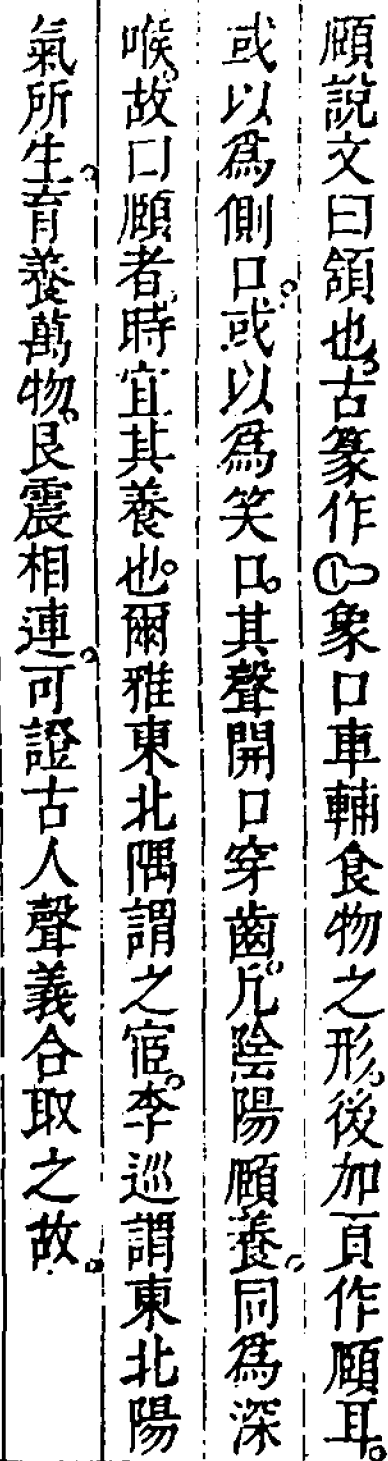 頤說文曰頷也。古篆作象口車輔食物之形。後加頁作頤耳。
或以爲側口。或以爲笑口。其聲開口穿齒。凡陰陽頤養。同爲深
喉。故口頤者。時宜其養也。爾雅東北隅謂之宧。李巡謂東北陽
氣所生。育養萬物。艮震相連。可證古人聲義合取之故。